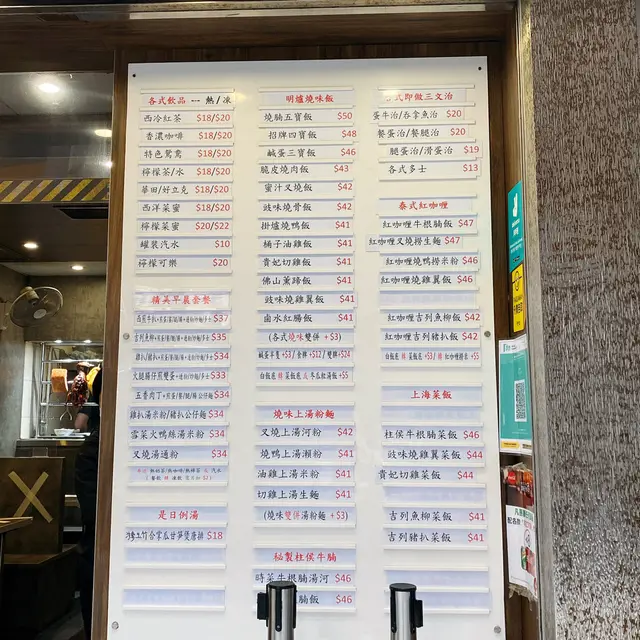 各式飲品 — 熱/凍
西冷紅茶 $18/$20
香濃咖啡 $18/$20
特色鴛鴦 $18/$20
檸檬茶/水 $18/$20
華田/好立克 $18/$20
西洋菜蜜 $18/$20
檸檬菜蜜 $20/$22
罐裝汽水 $10
檸檬可樂 $20
精美早晨套餐
$37
$35
$34
火腿腸仔煎雙蛋 $33
五香肉丁 $34
雞扒湯米粉/豬扒公仔麵 $34
雪菜火鴨絲湯米粉 $34
叉燒湯通粉 $34
是日例湯
$18
明爐燒味飯
燒腩五寶飯 $50
招牌四寶飯 $48
鹹蛋三寶飯 $46
脆皮燒肉飯 $43
蜜汁叉燒飯 $42
豉味燒骨飯 $42
掛爐燒鴨飯 $41
桶子油雞飯 $41
貴妃切雞飯 $41
佛山薰蹄飯 $41
豉味燒雞翼飯 $41
鹵水紅腸飯 $41
(各式燒味雙併 +$3)
鹹蛋半隻 +$3/全髀 +$12/雙髀 +$24
白飯底 轉 菜飯底 或 冬瓜粒湯飯 +$5
燒味上湯粉麵
叉燒上湯河粉 $42
燒鴨上湯瀨粉 $41
油雞上湯米粉 $41
切雞上湯生麵 $41
(燒味雙併湯粉麵 + $3)
秘製柱侯牛腩
時菜牛根腩湯河 $46
腩飯 $46
式即做三文治
蛋牛治/吞拿魚治 $20
餐蛋治/餐腿治 $20
腿蛋治/滑蛋治 $19
各式多士 $13
泰式紅咖喱
紅咖喱牛根腩飯 $47
紅咖喱叉燒撈生麵 $47
紅咖喱燒鴨撈米粉 $46
紅咖喱燒雞翼飯 $46
紅咖喱吉列魚柳飯 $42
紅咖喱吉列豬扒飯 $42
白飯底 轉 菜飯底 +$3/轉 紅咖喱撈米 +$5
上海菜飯
柱侯牛根腩菜飯 $46
豉味燒雞翼菜飯 $44
貴妃切雞菜飯 $44
吉列魚柳菜飯 $41
吉列豬扒菜飯 $41